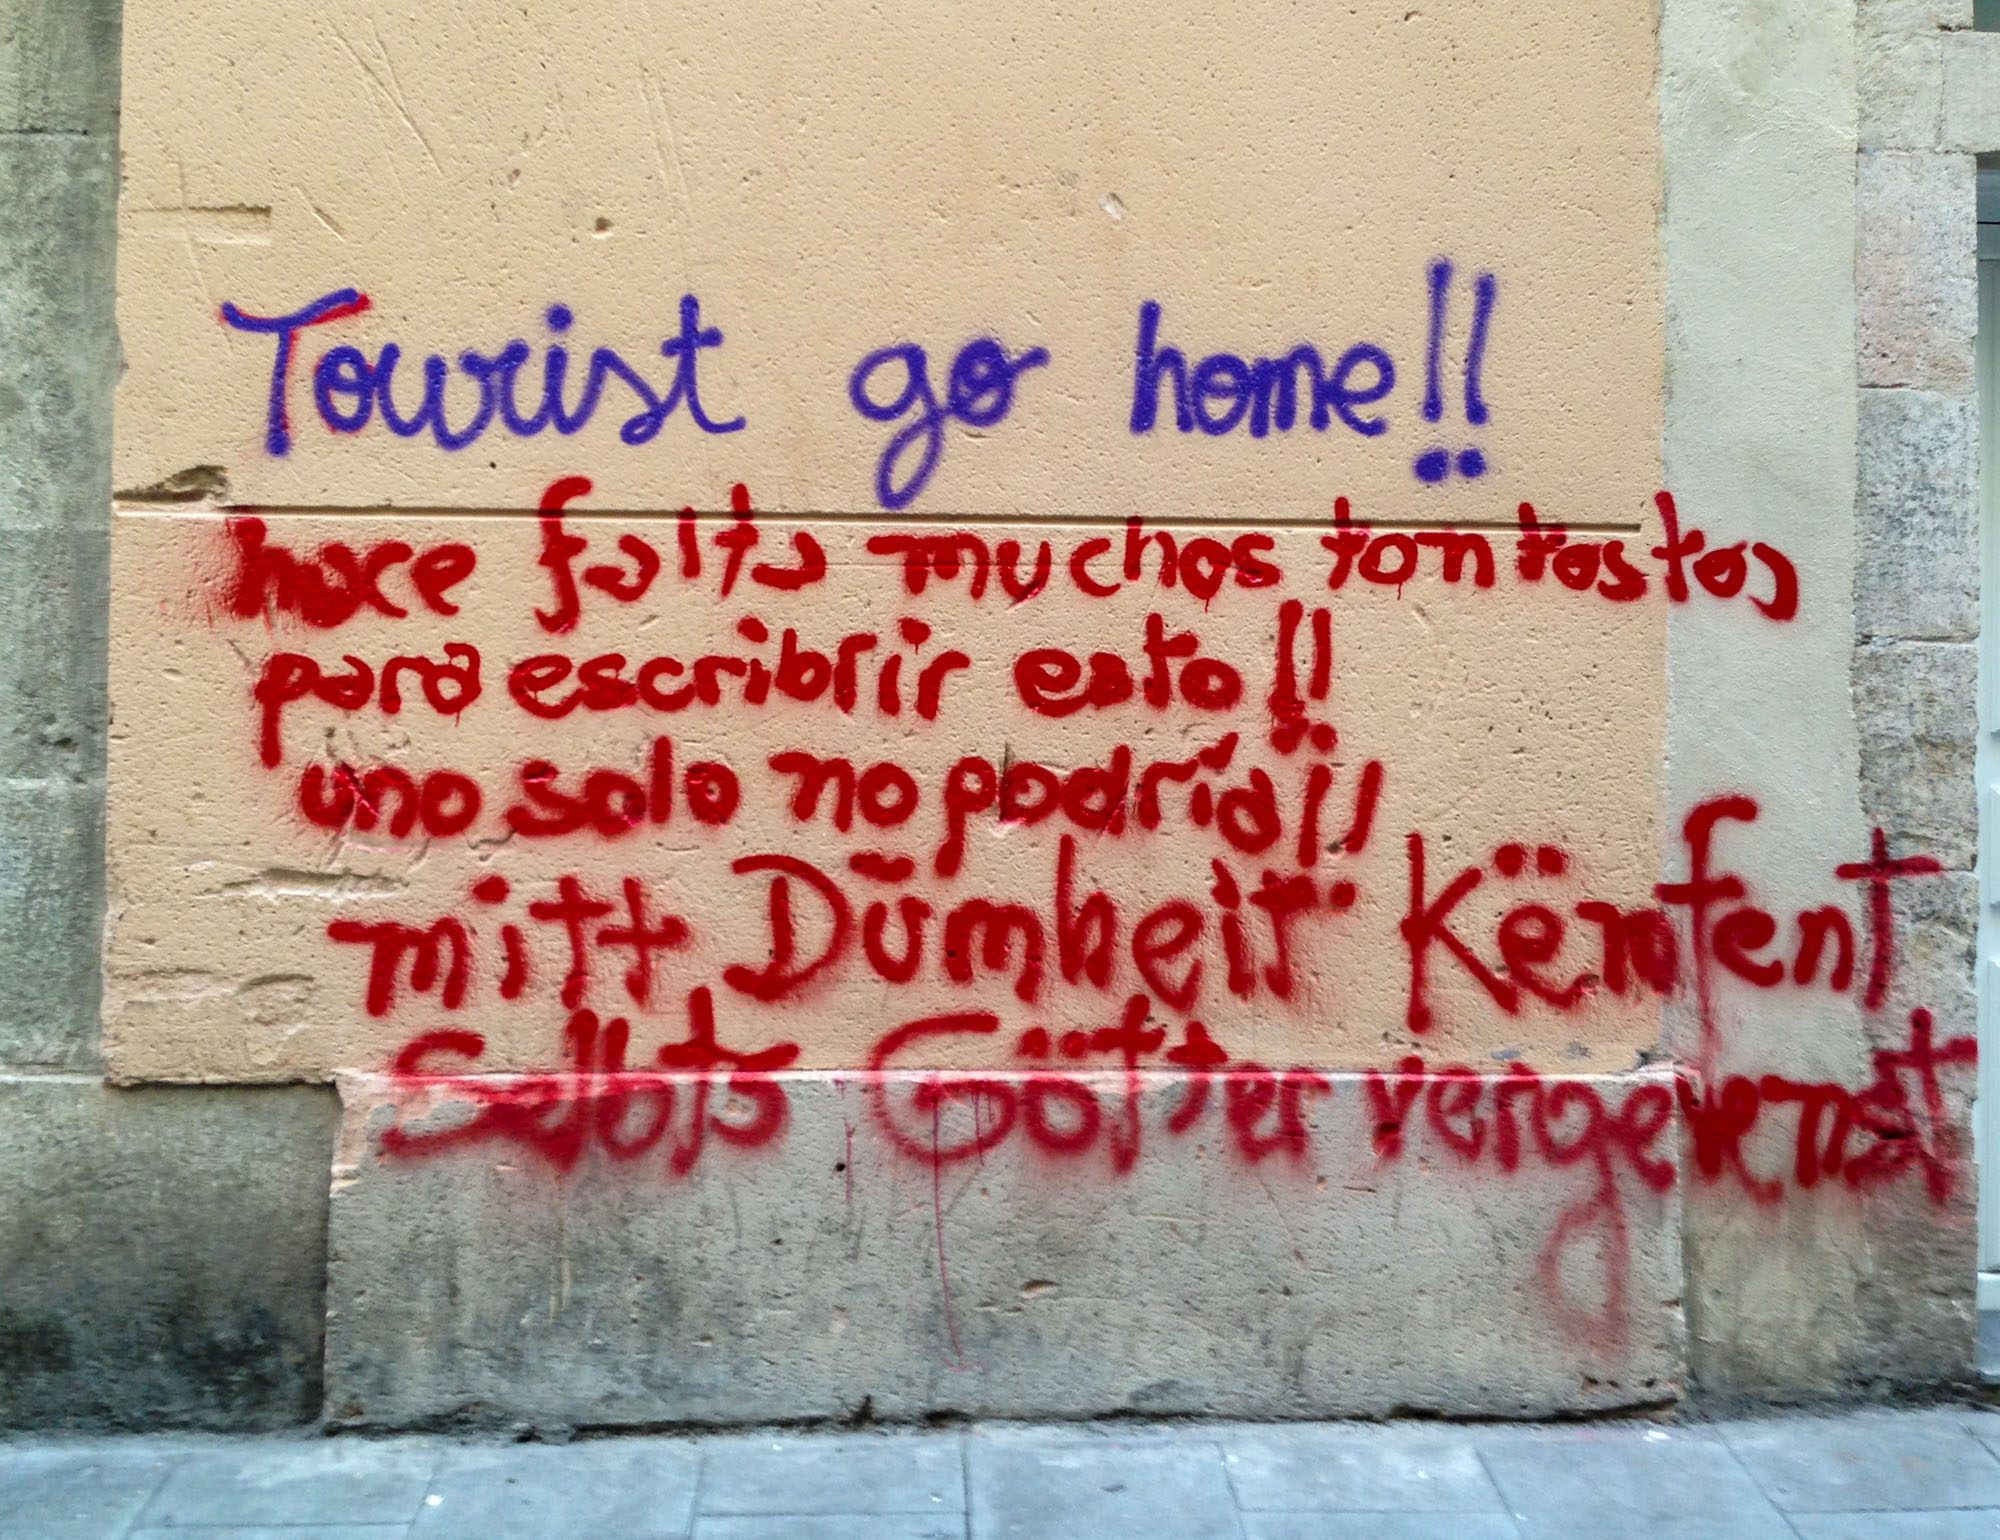 Tourist go home!!
hace falta muchos tontostos
para escribrir esto!!
uno solo no podría!!
mitt Dūmheit Këmfent
Selbts Götter vergevenst